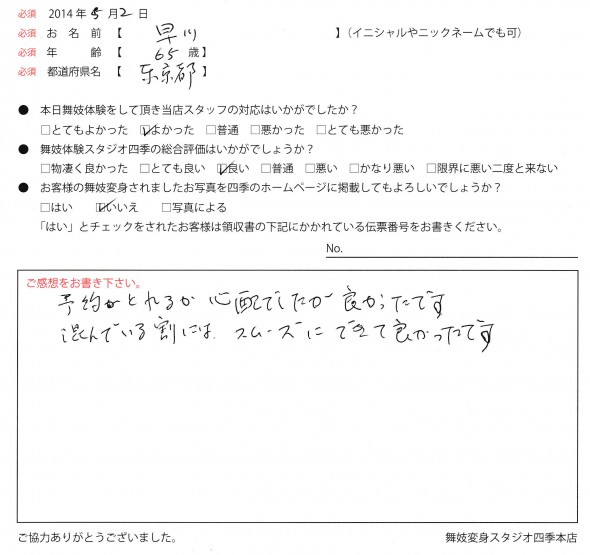 必須 2014 年 5 月 2 日
必須 お 名 前 【 早川 】（イニシャルやニックネームでも可）
必須 年 齢 【 65 歳】
必須 都道府県名 【 東京都 】
● 本日舞妓体験をして頂き当店スタッフの対応はいかがでしたか？
□とてもよかった ☑よかった □普通 □悪かった □とても悪かった
● 舞妓体験スタジオ四季の総合評価はいかがでしょうか？
□物凄く良かった □とても良い ☑良い □普通 □悪い □かなり悪い □限界に悪い二度と来ない
● お客様の舞妓変身されましたお写真を四季のホームページに掲載してもよろしいでしょうか？
□はい ☑いいえ □写真による
「はい」とチェックをされたお客様は領収書の下記にかかれている伝票番号をお書きください。
No.
ご感想をお書き下さい。
予約がとれるか 心配でしたが 良かったです
混んでいる割には、スムーズに できて良かったです
ご協力ありがとうございました。
舞妓変身スタジオ四季本店